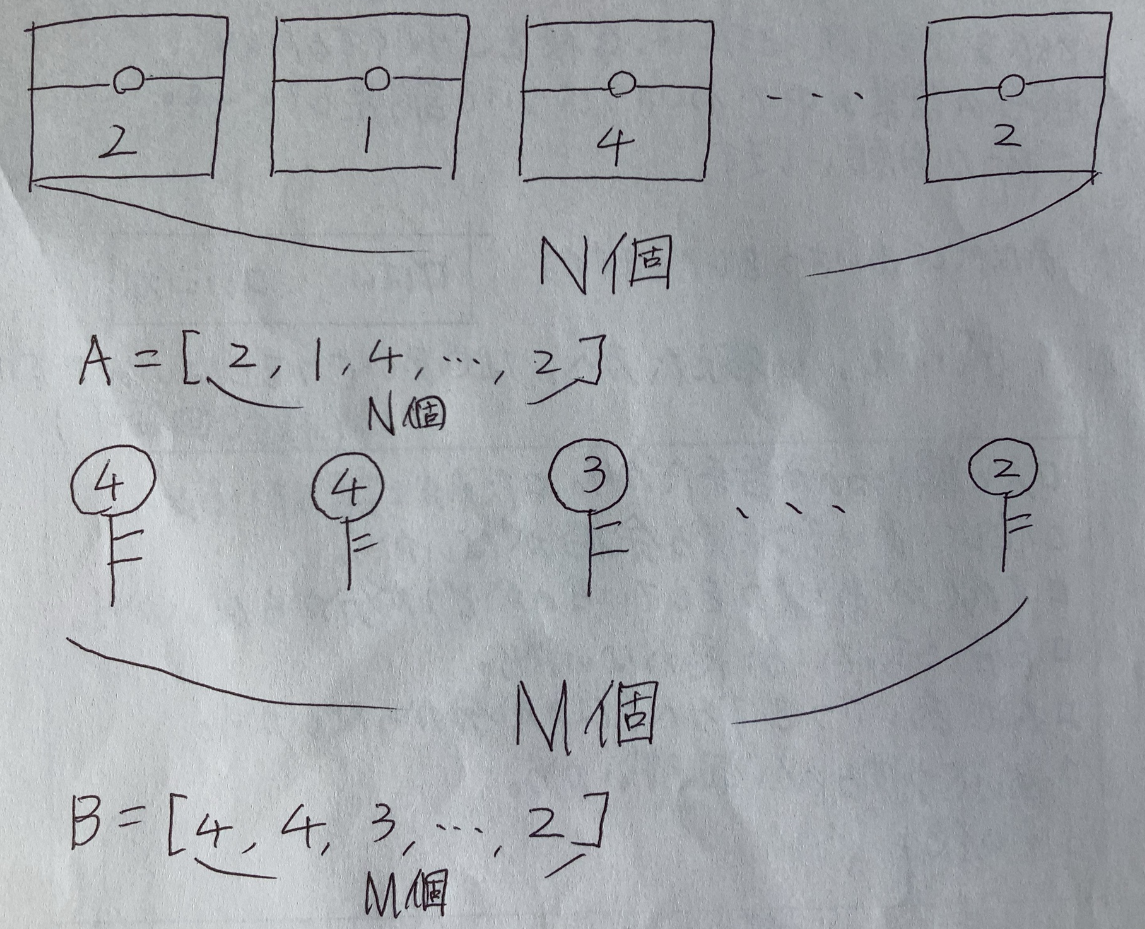 2 1 4 ... 2
N個
A = [2, 1, 4, ..., 2]
N個
4 4 3 ... 2
M個
B = [4, 4, 3, ..., 2]
M個